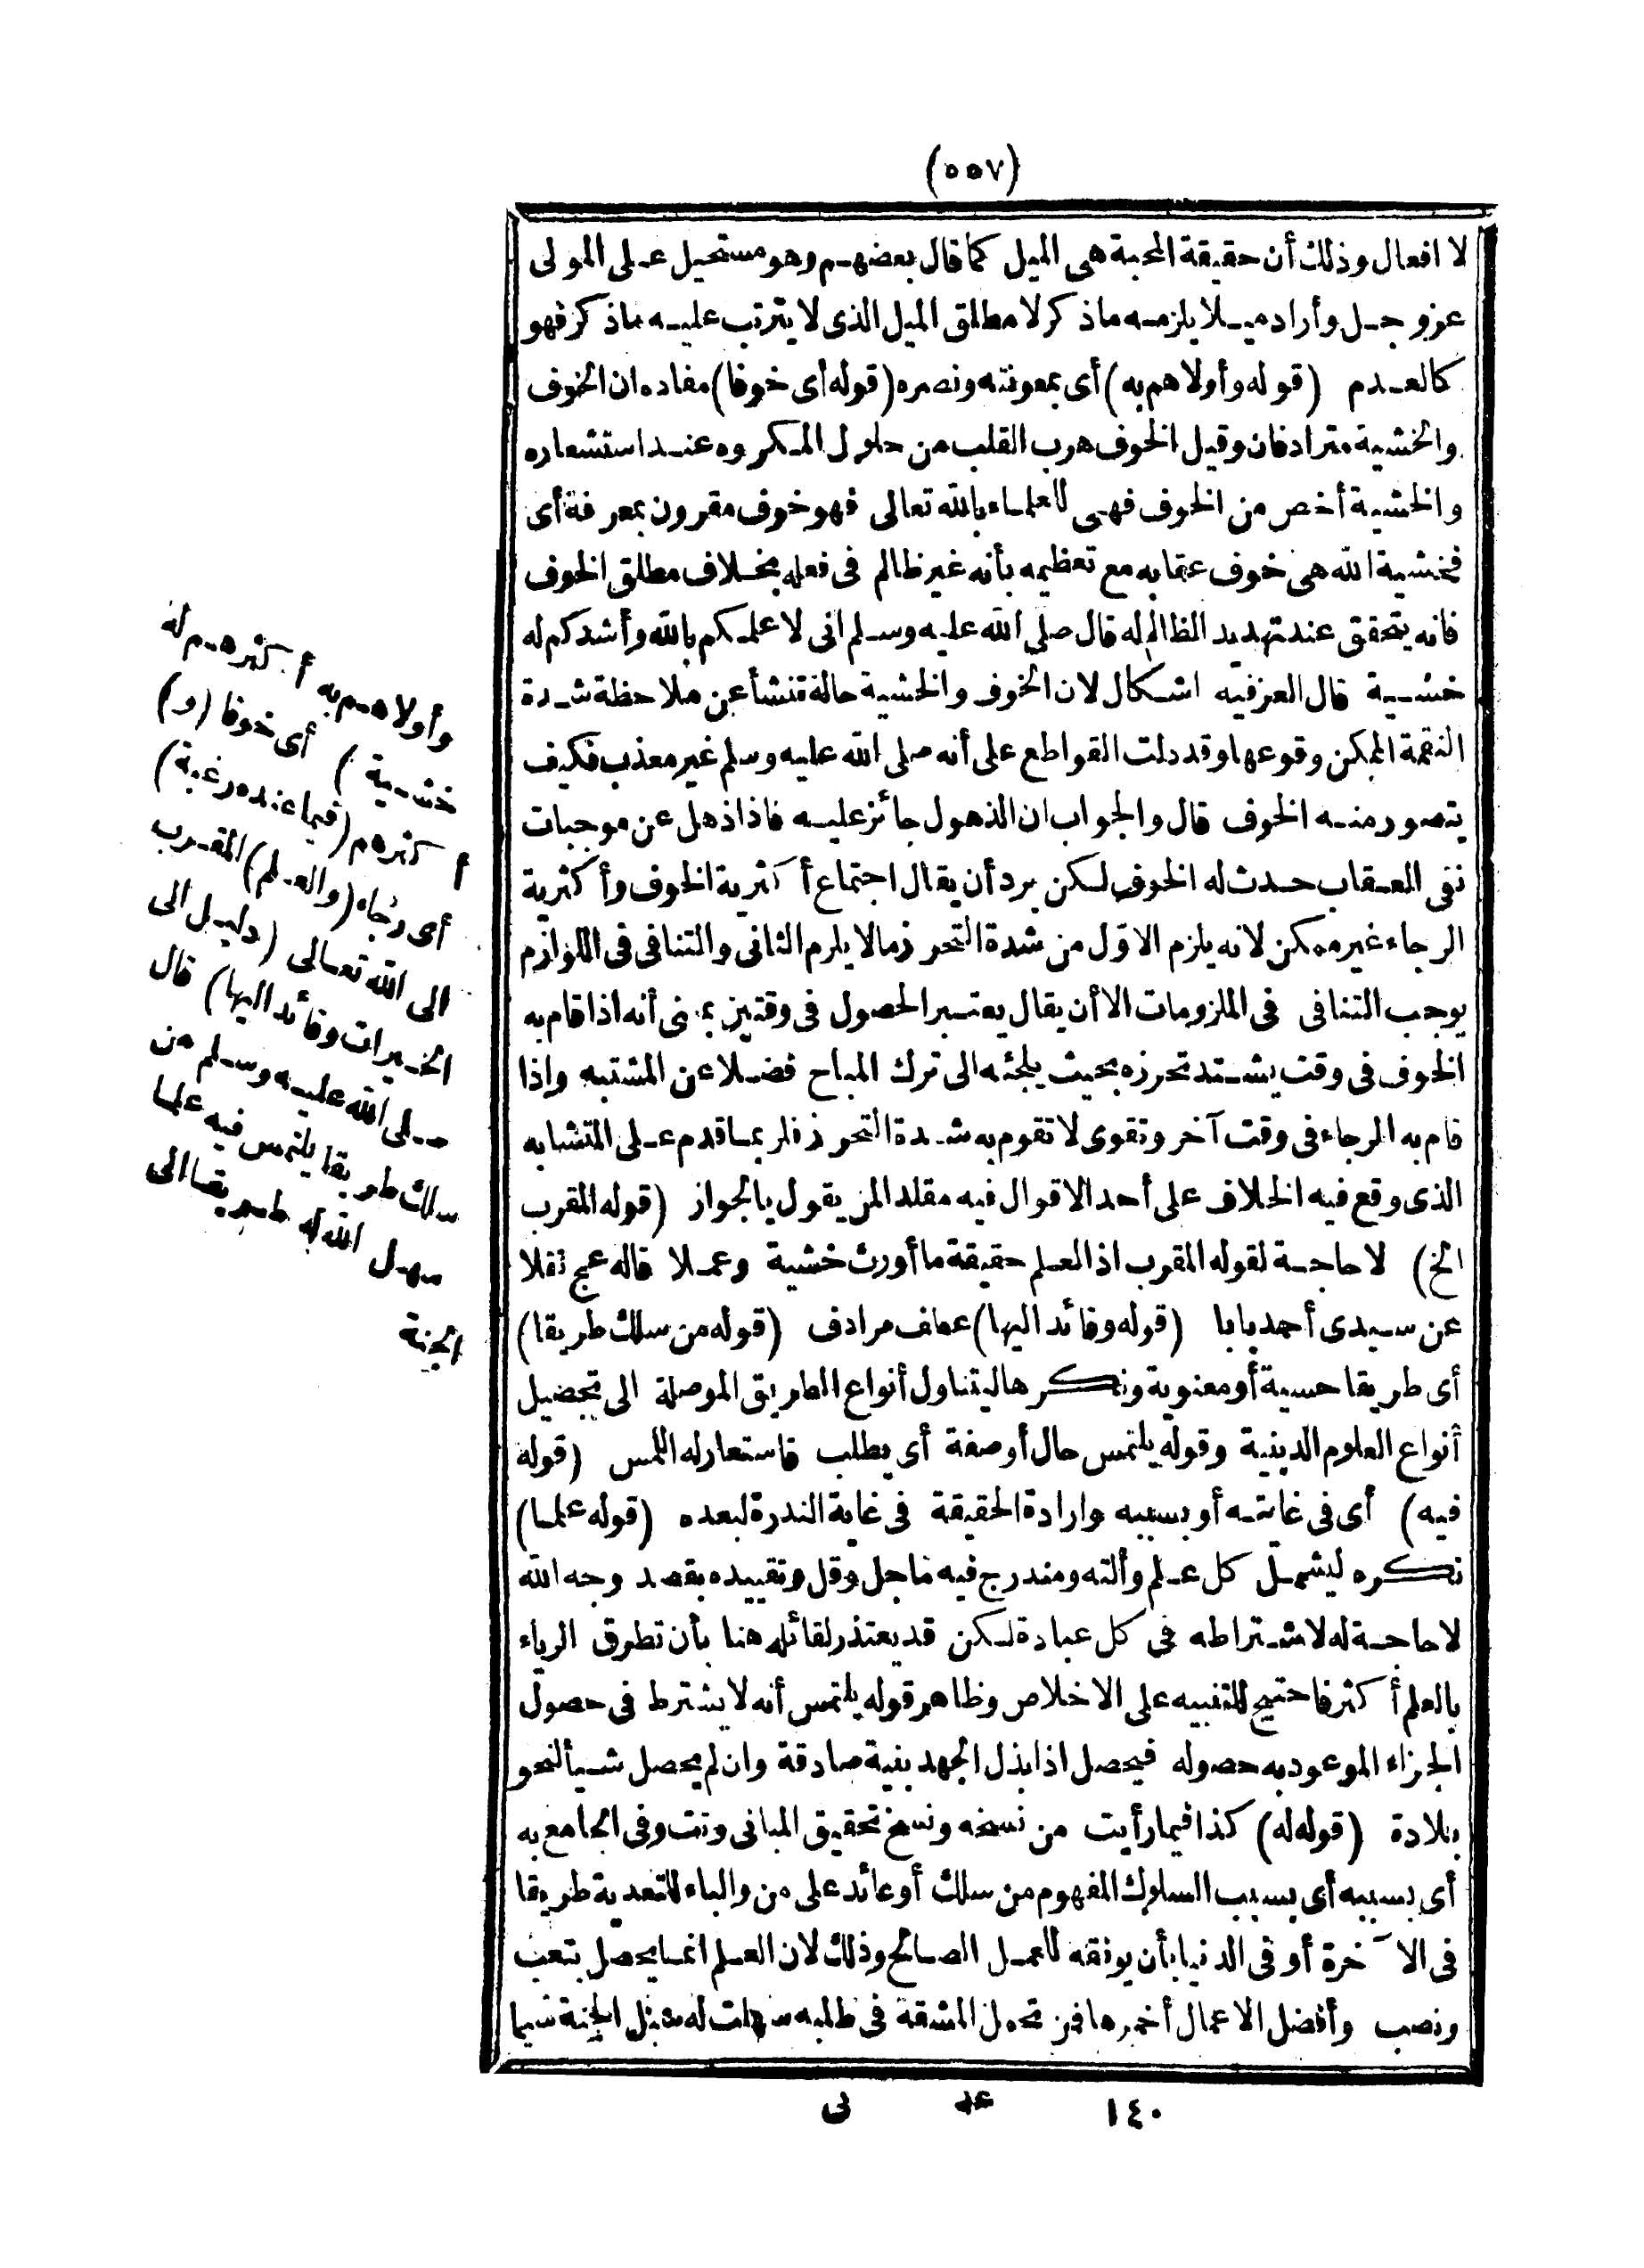 (٥٥٧)
لا افعال وذلك أن حقيقة المحبة هى الميل كما قال بعضهم وهو مستحيل على المولى
عز وجل وأراد ميلا يلزمه ماذكر لا مطلق الميل الذى لا يترتب عليه ماذكر فهو
كالعدم (قوله وأولاهم به) أى بمعونته ونصره (قوله أى خوفا) مفاده ان الخوف
والخشية مترادفان وقيل الخوف هرب القلب من حلول المكروه عند استشعاره
والخشية أخص من الخوف فهى للعلماء بالله تعالى فهو خوف مقرون بمعرفة أى
فخشية الله هى خوف عقابه مع تعظيمه بأنه غير ظالم فى فعله بخلاف مطلق الخوف
فانه يتحقق عند تهديد الظالم له قال صلى الله عليه وسلم انى لاعلمكم بالله وأشدكم له
خشية قال العز فيه اشكال لان الخوف والخشية حالة تنشأ عن ملاحظة شدة
النقمة الممكن وقوعها وقد دلت القواطع على أنه صلى الله عليه وسلم غير معذب فكيف
يتصور منه الخوف قال والجواب ان الذهول جائز عليه فاذا ذهل عن موجبات
نفى العقاب حدث له الخوف لكن يرد أن يقال اجتماع أكثرية الخوف وأكثرية
الرجاء غير ممكن لانه يلزم الاول من شدة التحرز مالا يلزم الثانى والتنافى فى اللوازم
يوجب التنافى فى الملزومات الا أن يقال يعتبر الحصول فى وقتين بمعنى أنه اذا قام به
الخوف فى وقت يشتد تحرزه بحيث يلجئه الى ترك المباح فضلا عن المشتبه واذا
قام به الرجاء فى وقت آخر وتقوى لا تقوم به شدة التحرز فلربما قدم على المتشابه
الذى وقع فيه الخلاف على أحد الاقوال فيه مقلدا لمن يقول بالجواز (قوله المقرب
الخ) لا حاجة لقوله المقرب اذ العلم حقيقة ما أورث خشية وعملا قاله عج نقلا
عن سيدى أحمد بابا (قوله وقائد اليها) عطف مرادف (قوله من سلك طريقا)
أى طريقا حسية أو معنوية ونكرها ليتناول أنواع الطريق الموصلة الى تحصيل
أنواع العلوم الدينية وقوله يلتمس حال أو صفة أى يطلب فاستعار له اللمس (قوله
فيه) أى فى غايته أو بسببه وارادة الحقيقة فى غاية الندرة لبعده (قوله علما)
نكره ليشمل كل علم وآلته ومندرج فيه ما جل وقل وتقييده بقصد وجه الله
لا حاجة له لاشتراطه فى كل عبادة لكن قد يعتذر لقائله هنا بأن تطرق الرياء
بالعلم أكثر فاحتيج للتنبيه على الاخلاص وظاهر قوله يلتمس أنه لا يشترط فى حصول
الجزاء الموعود به حصوله فيحصل اذا بذل الجهد بنية صادقة وان لم يحصل شيأ لنحو
بلادة (قوله له) كذا فيما رأيت من نسخه ونسخ تحقيق المبانى وتت وفى الجامع به
أى بسببه أى بسبب السلوك المفهوم من سلك أو عائد على من والباء للتعدية طريقا
فى الآخرة أو فى الدنيا بأن يوفقه للعمل الصالح وذلك لان العلم انما يحصل بتعب
ونصب وأفضل الاعمال أحمزها فمن تحمل المشقة فى طلبه سهلت له سبل الجنة سيما
١٤٠ عد نى
وأولاهم به أكثرهم له
خشية) أى خوفا (و)
أكثرهم (فيما عنده رغبة)
أى رجاء (والعلم) المقرب
الى الله تعالى (دليل الى
الخيرات وقائد اليها) قال
صلى الله عليه وسلم من
سلك طريقا يلتمس فيه علما
سهل الله له طريقا الى
الجنة